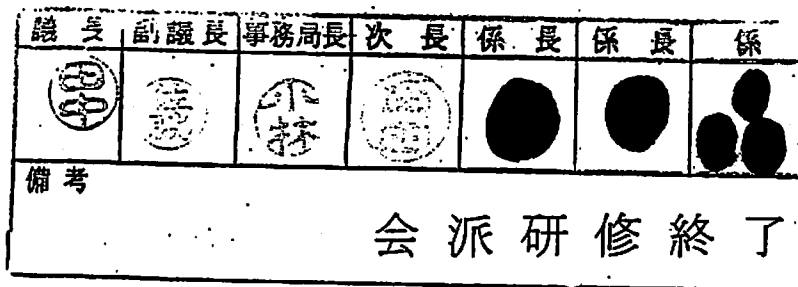 議長 副議長 事務局長 次長 係長 係長 係
小林
備考
会派研修終了